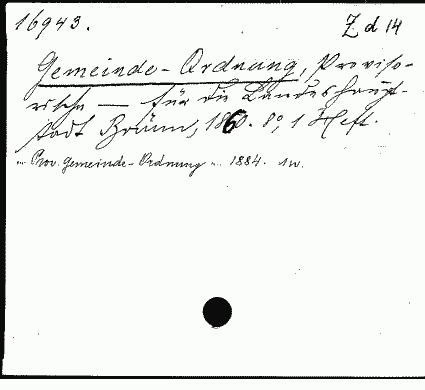 16943. Z d 14
Gemeinde-Ordnung, Proviso-
rische — für die Landeshaupt-
stadt Brünn, 1860. 8°, 1 Heft.
„ Prov. Gemeinde-Ordnung „ 1884. 1w.